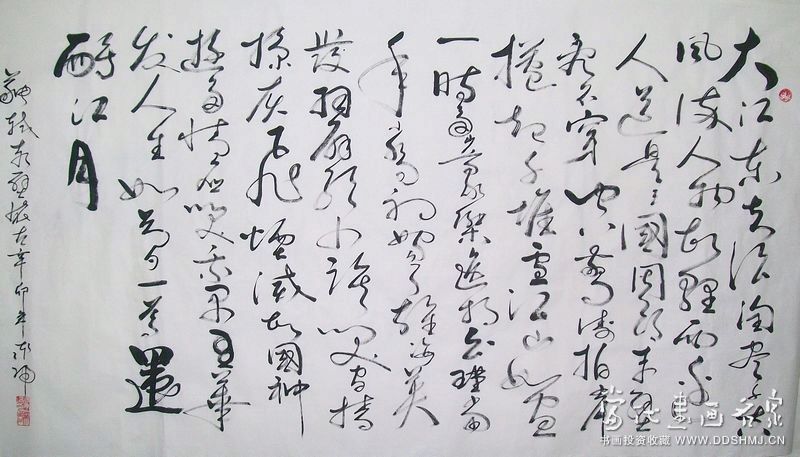 大江东去浪淘尽千古
风流人物故壘西边
人道是三國周郎赤壁
乱石穿空驚涛拍岸
捲起千堆雪江山如画
一時多少豪傑遥想公瑾当
年小乔初嫁了雄姿英
發羽扇纶巾谈笑间樯
橹灰飞煙滅故國神
遊多情应笑我早生華
发人生如梦一尊還
酹江月
苏轼赤壁怀古辛卯年
当代书画名家
书画投资收藏 WWW.DDSHMJ.CN